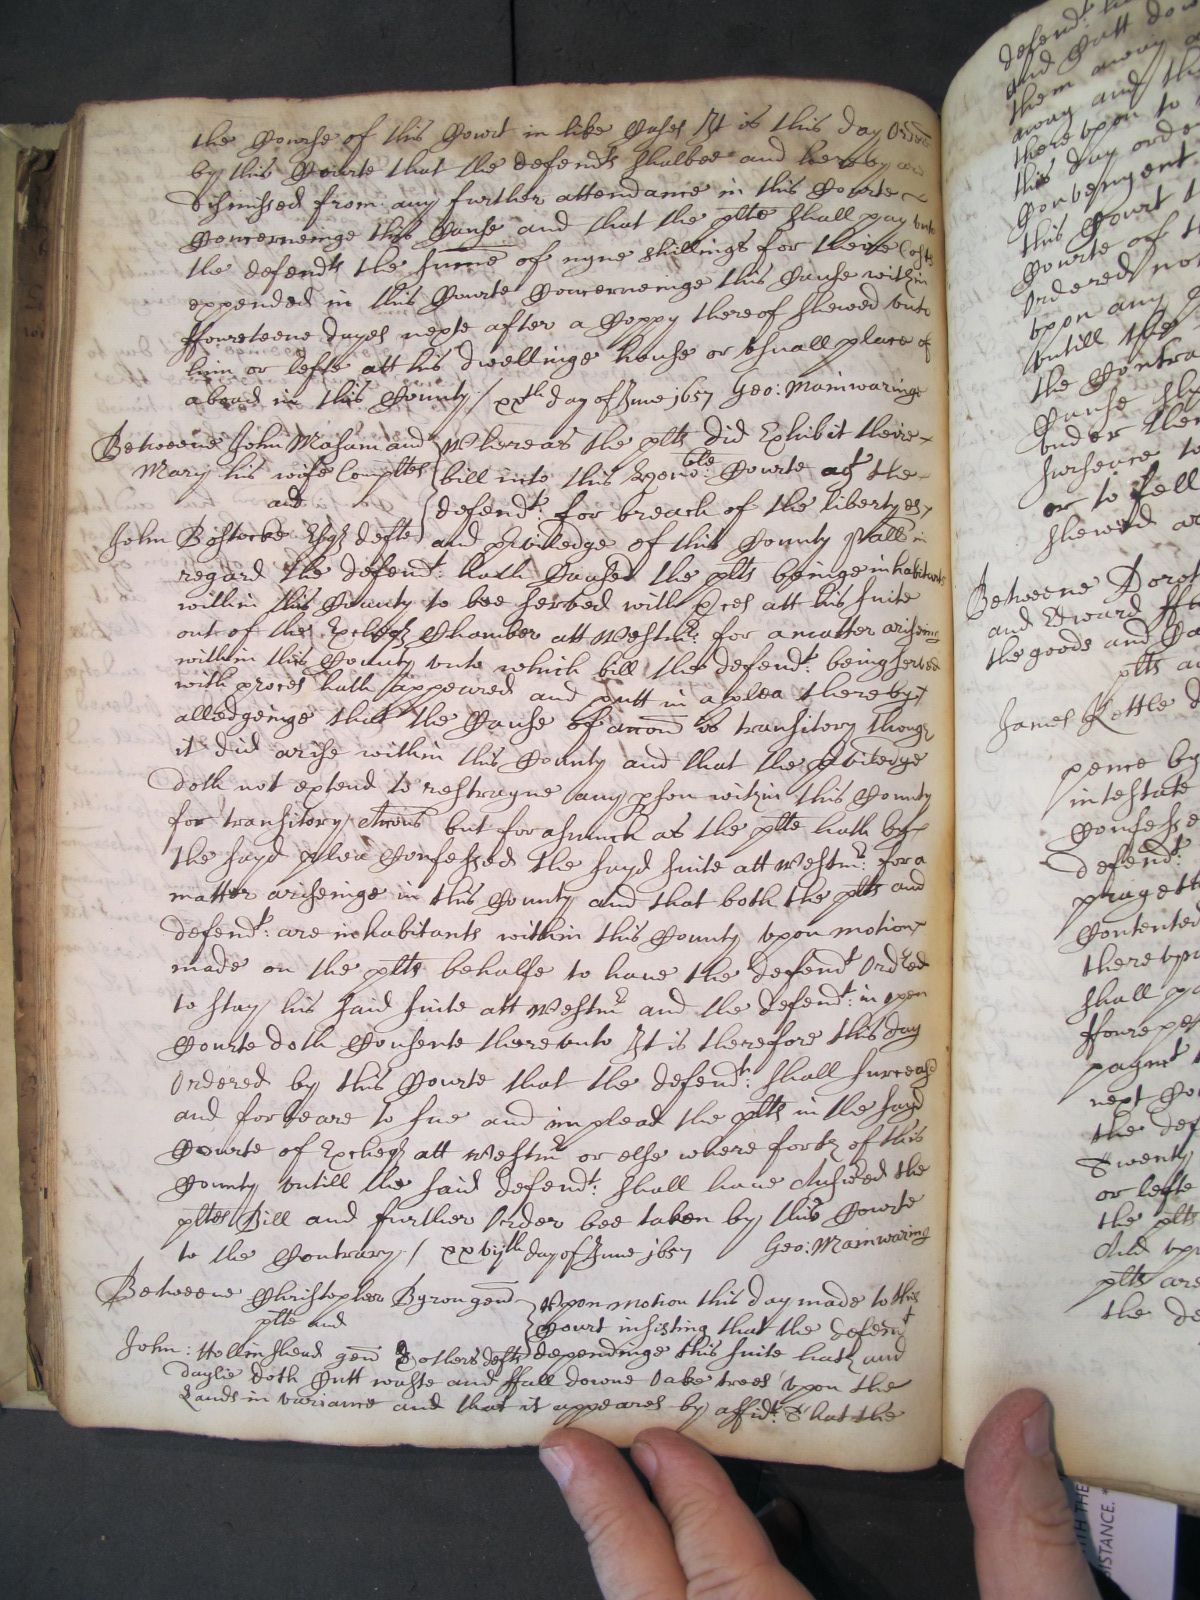 the Course of this Court in like Cases It is this day Ordred
by this Courte that the defendts shalbee and hereby are
dismissed from any further attendance in this Courte
Concerneinge this Cause and that the plts shall pay vnto
the defendts the summe of nyne shillings for theire Costs
expended in this Courte Concerneinge this Cause within
ffoureteene dayes nexte after a Coppy thereof shewed vnto
him or lefte att his dwellinge house or vsuall place of
aboad in this County / xxth day of June 1657 Geo: Mainwaringe
Betweene John Masham and
Mary his wife Complts
and
John Bostocke Esqr defte
Whereas the plts did Exhibit theire
bill into this honoble: Courte agt the
defendt: for breach of the libertyes
and priviledge of this County Pallt in
regard the defendt: hath Caused the plts beinge inhabitants
within this County to bee served with proces att his suite
out of the Excheqr Chamber att Westmr: for a matter ariseing
within this County vnto which bill the defendt: being served
with proces hath appeared and putt in a plea thereby
alledgeinge that the Cause of accon is transitory though
it did arise within this County and that the priviledge
doth not extend to restrayne any pson within this County
for transitory Accons but forasmuch as the plte hath by
the sayd plea Confessed the sayd suite att Westmr: for a
matter ariseinge in this County and that both the plts and
defendt: are inhabitants within this County vpon motion
made on the plts behalfe to have the defendt Ordred
to stay his said suite att Westmr and the defendt: in open
Courte doth Consente therevnto It is therefore this day
Ordered by this Courte that the defendt: shall surcease
and forbeare to sue and implead the plts in the sayd
Courte of Excheqr att Westmr or else where forth of this
County vntill the said defendt: shall have Answered the
pltes Bill and further Order bee taken by this Courte
to the Contrary / xxvijth day of June 1657 Geo: Mainwaring
Betweene Christopher Byron gen
plte and
John: Hollinshead gen & others defts
Vpon motion this day made to this
Court insisting that the defendt
dependinge this suite hath and
daylie doth Cutt waste and ffall downe Oake trees vpon the
Lands in variance and that it appeares by affidt: That the
defendt:
and Cutt dow
them away
away and th
there vpon to
this day orde
Convenyent
this Court t
Courte of t
Ordered not
vpon any
vntill the
the Contra
Cause sh
vnder the
or to fell
shewed
Betweene Dorot
and Edward
the goods and
plts
James Kettle
pence by
intestate
Confesse
defendt:
Contented
therevpon
shall pa
paymt
next
the def
Twenty
or lefte
the plts
And vp
plts are
the de
TH THE
ISTANCE.